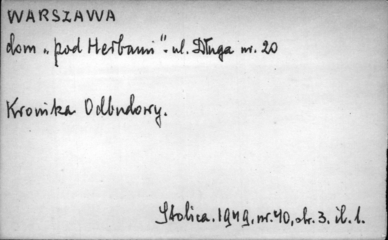 WARSZAWA
dom „pod Herbami". ul. Długa nr. 20
Kronika Odbudowy.
Stolica. 1949, nr. 40, str. 3. il. 1.